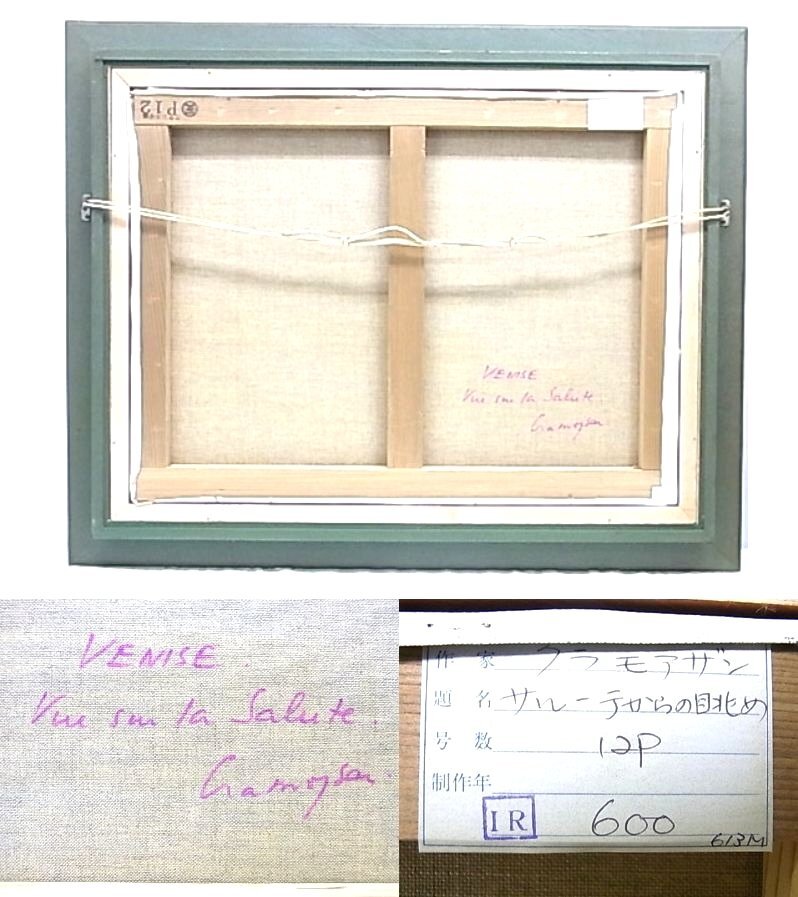 P12
VENISE
Vue sur la Salute.
Cramoysan
VENISE.
Vue sur la Salute.
Cramoysan
作家 クラモアザン
題名 サルーテからの眺め
号数 12P
制作年
IR 600
613M